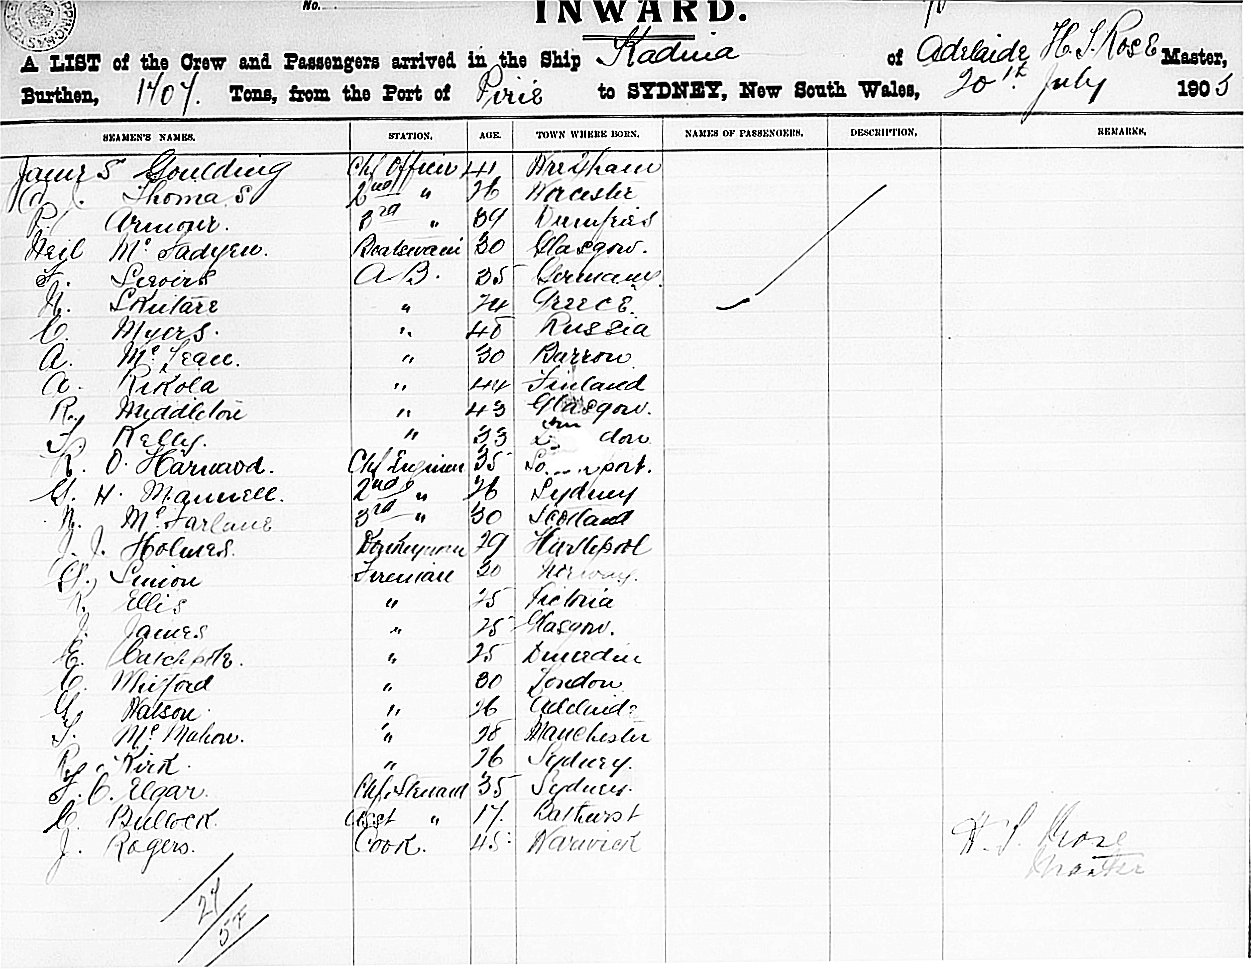 No.
INWARD.
A LIST of the Crew and Passengers arrived in the Ship Kadina of Adelaide H. S. Rose Master,
Burthen, 1707. Tons, from the Port of Pirie to SYDNEY, New South Wales, 20th July 1905
SEAMEN'S NAMES. STATION. AGE. TOWN WHERE BORN. NAMES OF PASSENGERS. DESCRIPTION. REMARKS.
James Goulding Chf Officer 41 Wrexham
J. Thomas 2nd " 26 Worcester
Armour. 3rd " 39 Dumfries
Neil McFadyen. Boatswain 30 Glasgow.
F. A.B. 35 Germany.
N. Skuitare " 24 Greece
C. Myers. " 45 Russia
A. McLean. " 30 Barrow
A. Rikola " 44 Finland
R. Middleton " 43 Glasgow.
F. Kelly. " 33 London
R. O. Harwood. Chf Engineer 35
G. H. Mannell. 2nd " 26 Sydney
N. McFarlane 3rd " 30 Scotland
J. J. Holmes. Donkeyman 29 Hartlepool
Simon Fireman 30 Norway.
R. Ellis " 25 Victoria
J. James " 25 Glasgow.
E. Catchpole. " 25 Dunedin
C. Whitford " 30 London
G. Watson " 26 Adelaide
T. McMahon. " 28 Manchester
R. Kirk. " 26 Sydney.
F. C. Elgar. Chf Steward 35 Sydney.
C. Bullock. Asst " 17. Bathurst
J. Rogers. Cook. 45 Warwick
H. S. Rose
Master
27
57